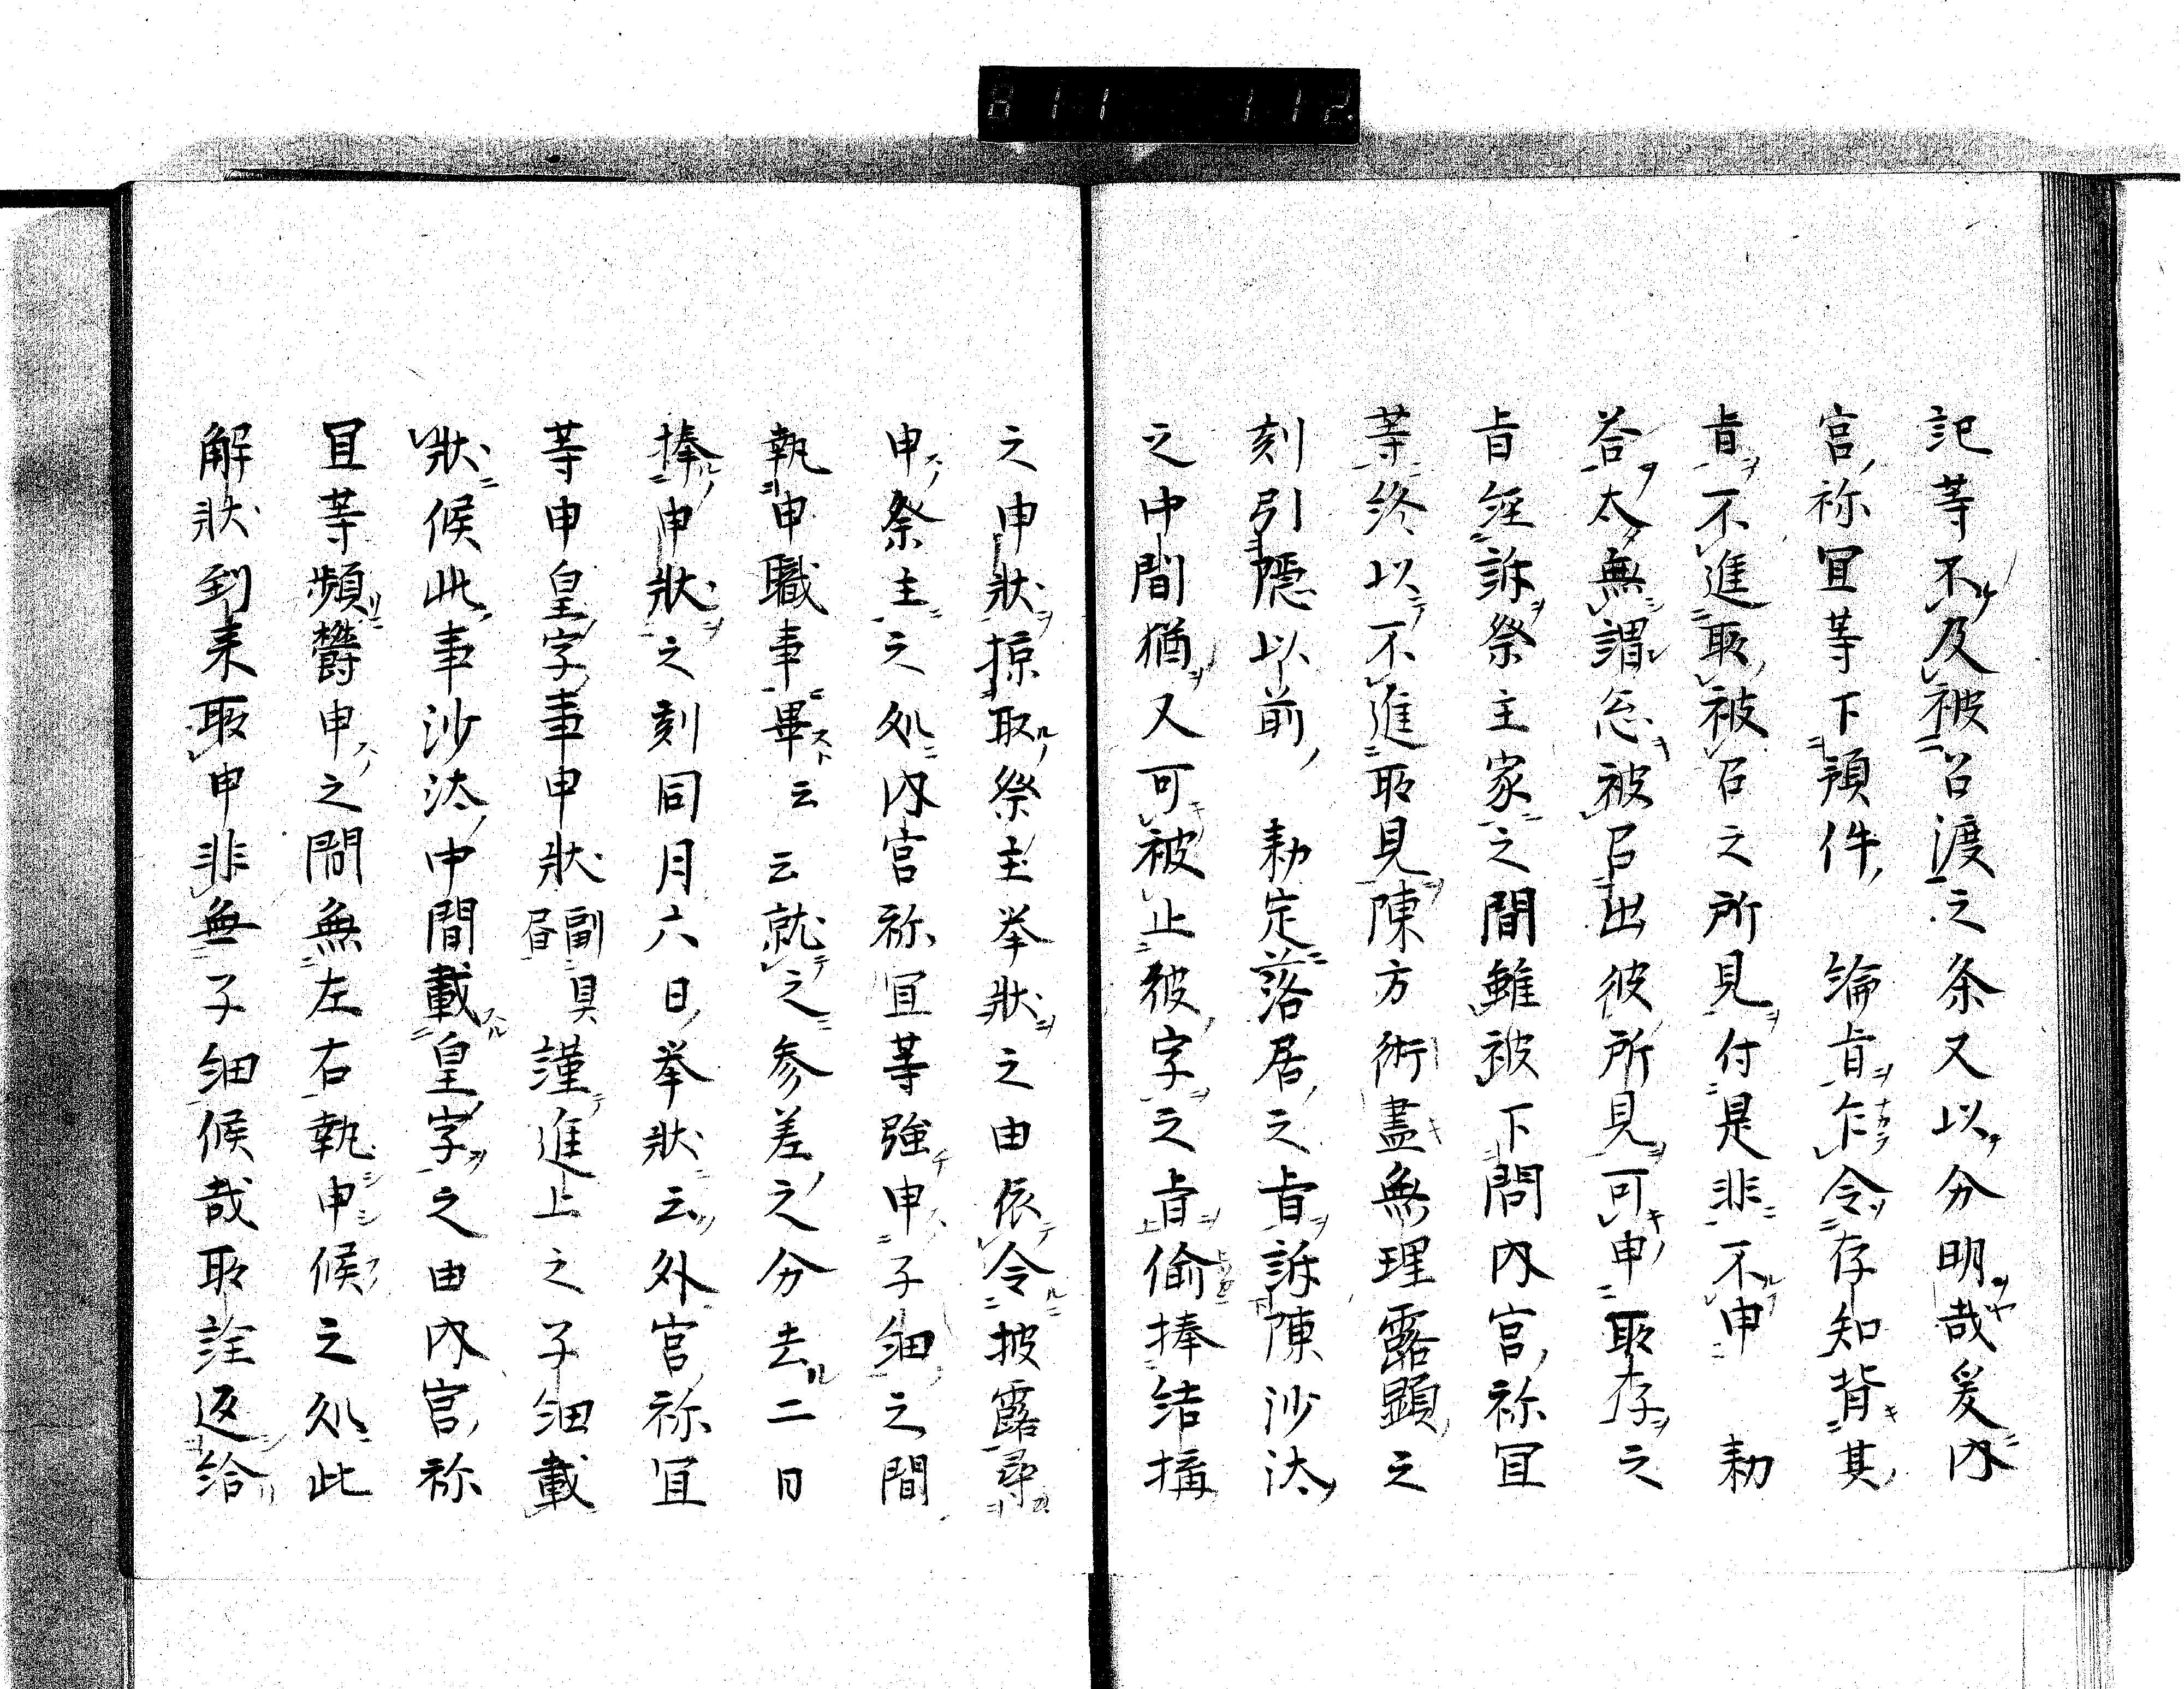 記等不及被召渡之条又以分明哉爰内
宮祢冝等下預件綸旨乍令存知背其
旨不進取被召之所見付是非不申勅
答太無謂忩被召出彼所見可申取存之
旨経訴祭主家之間雖被下問内宮祢冝
等終以不進取見陳方術盡無理露顕之
刻引隠以前勅定落居之旨訴陳沙汰
之中間猶又可被止彼字之旨偷捧結搆
之申狀掠取祭主挙狀之由依令披露尋
申祭主之処内宮祢冝等強申子細之間
執申職事畢云云就之参差之分去二日
捧申狀之刻同月六日挙狀云外宮祢冝
等申皇字事申狀副具書謹進上之子細載
狀候此事沙汰中間載皇字之由内宮祢
冝等頻欝申之間無左右執申候之処此
解狀到来取申非無子細候哉取詮返給